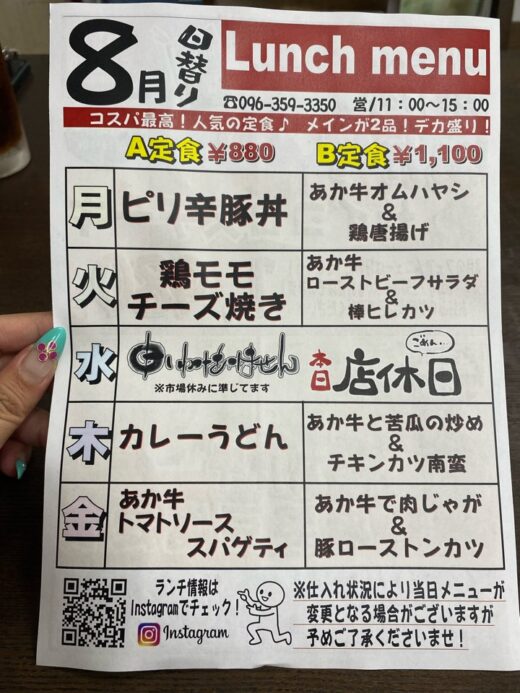 8月
日替り
Lunch menu
☎096-359-3350 営/11：00～15：00
コスパ最高！人気の定食♪ メインが2品！デカ盛り！
A定食 ¥880
B定食 ¥1,100
月
ピリ辛豚丼
あか牛オムハヤシ
&
鶏唐揚げ
火
鶏モモ
チーズ焼き
あか牛
ローストビーフサラダ
&
棒ヒレカツ
水
※市場休みに準じてます
本日
店休日
ごめん…
木
カレーうどん
あか牛と苦瓜の炒め
&
チキンカツ南蛮
金
あか牛
トマトソース
スパゲティ
あか牛で肉じゃが
&
豚ローストンカツ
ランチ情報は
Instagramでチェック！
Instagram
※仕入れ状況により当日メニューが
変更となる場合がございますが
予めご了承くださいませ！